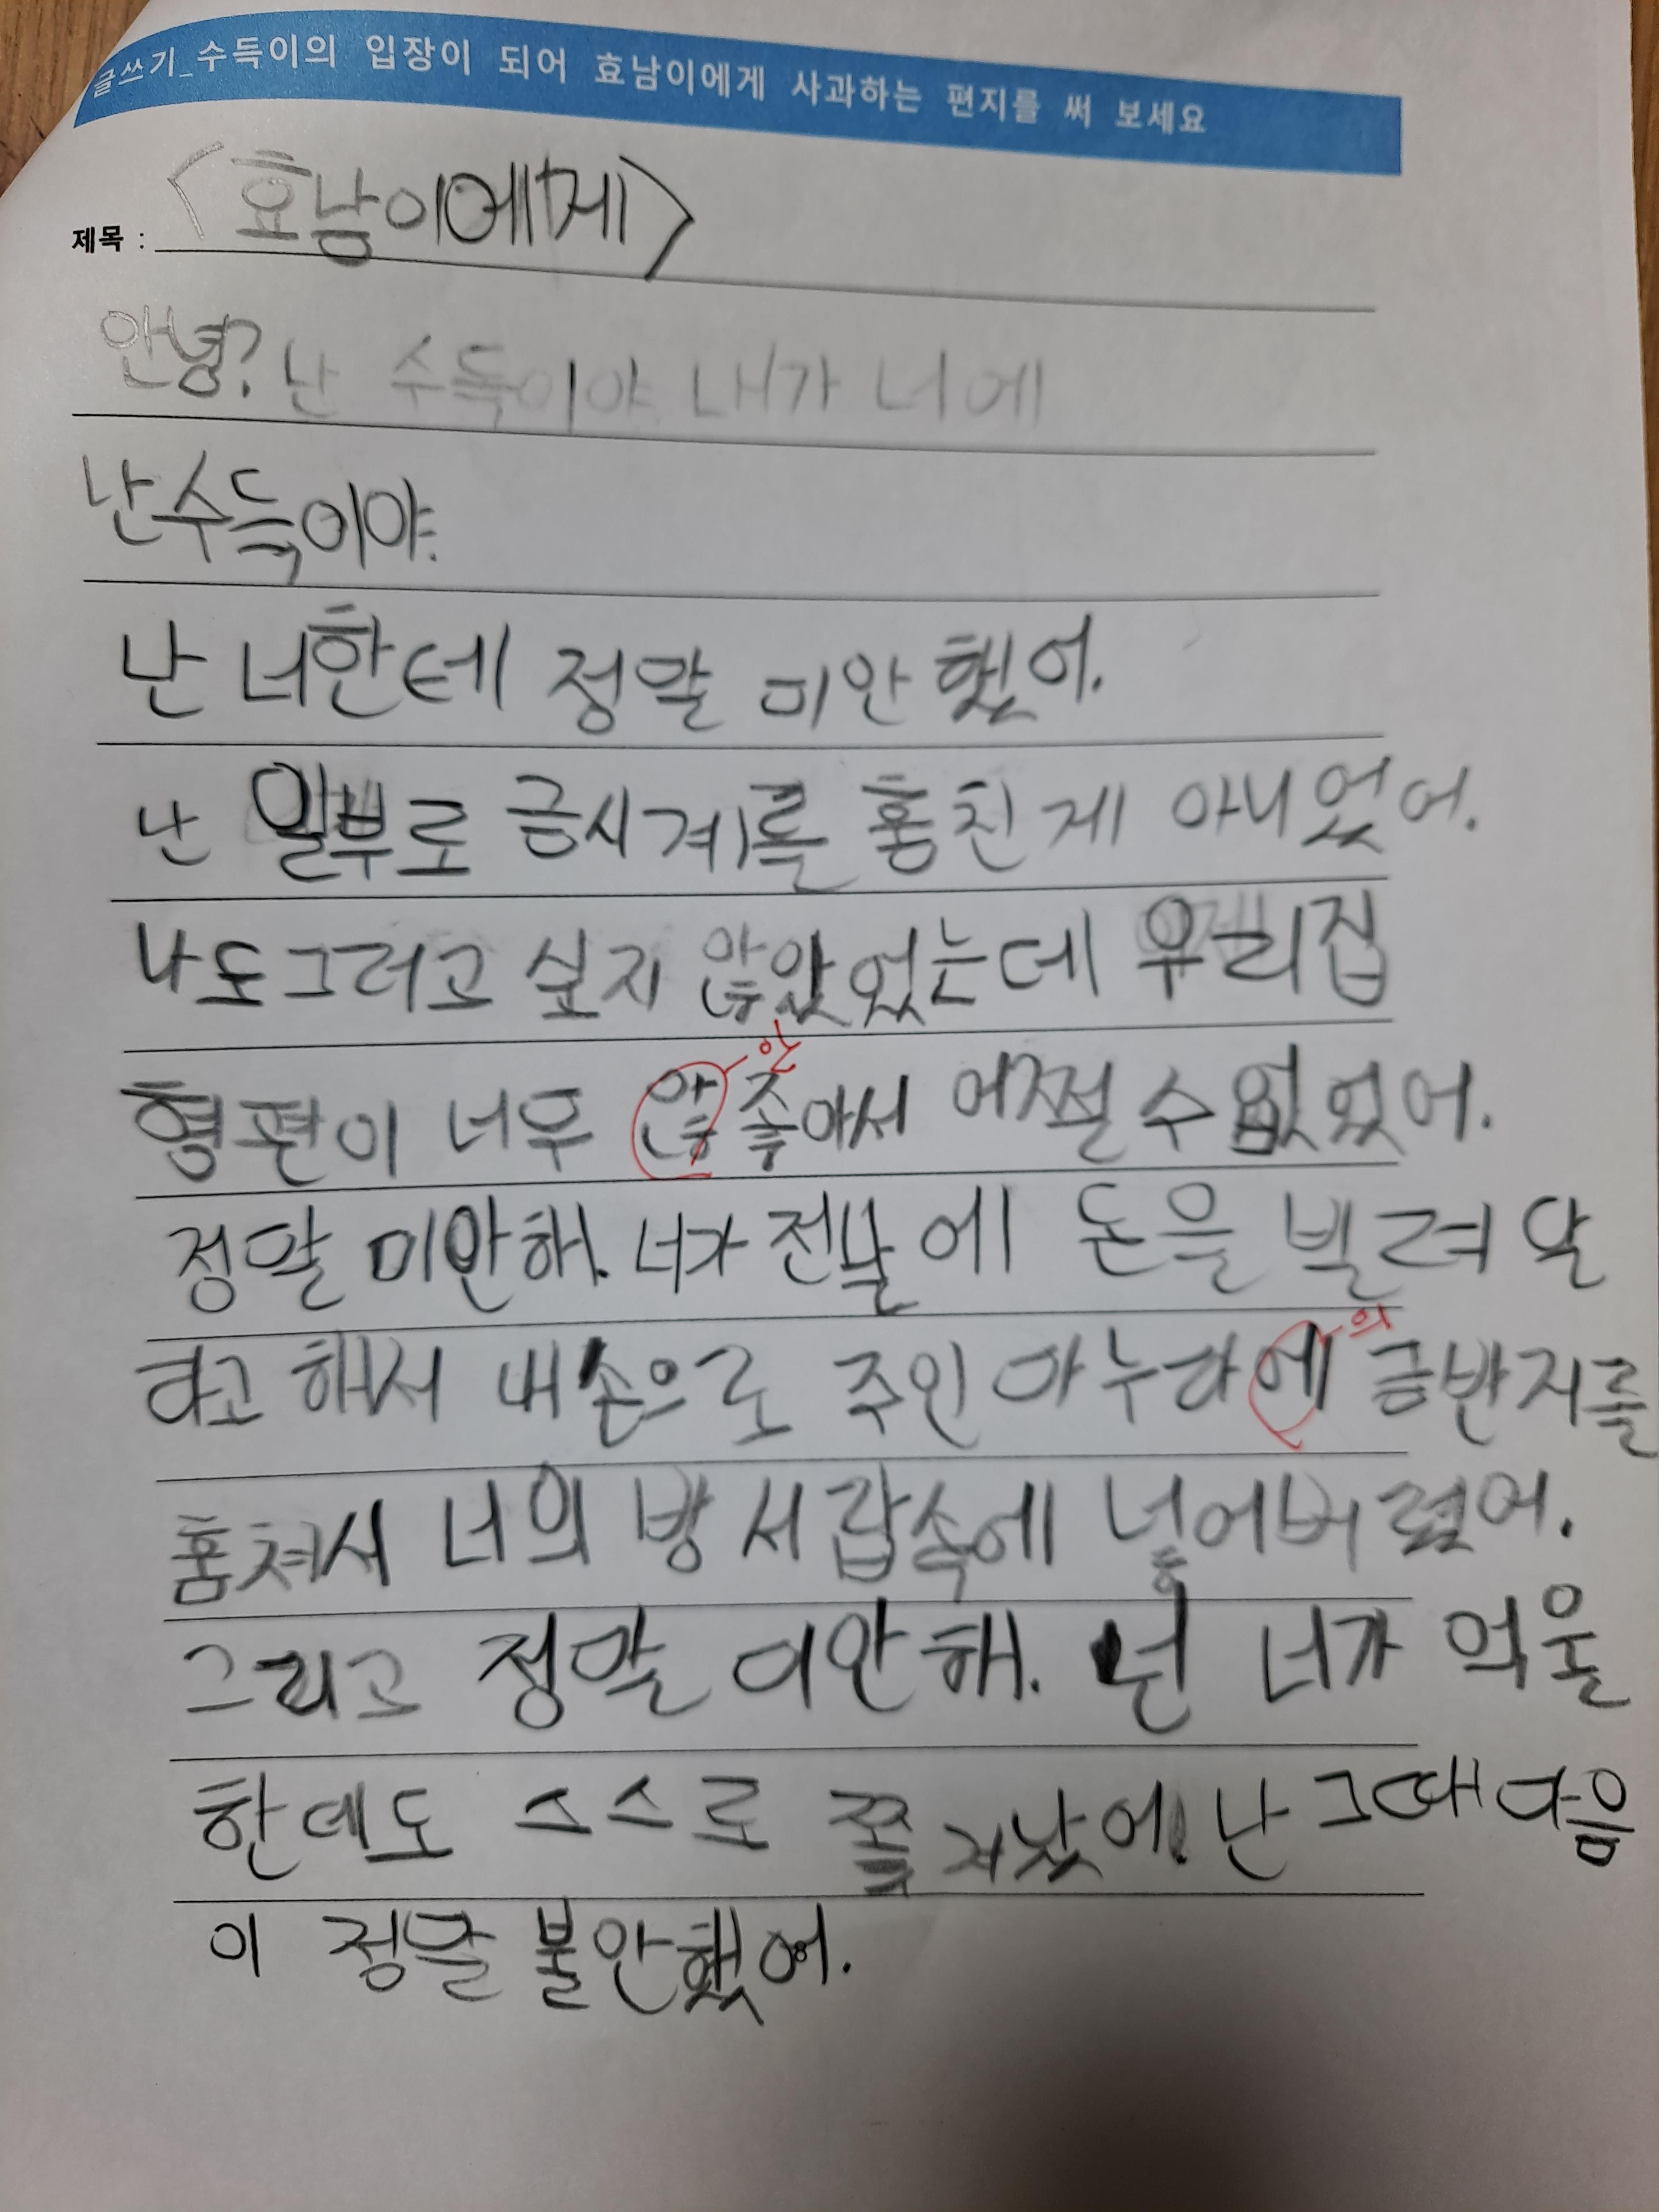 글쓰기_수득이의 입장이 되어 효남이에게 사과하는 편지를 써 보세요
제목 : <효남이에게>
안녕? 난 수득이야 내가 너에
난수득이야.
난 너한테 정말 미안했어.
난 일부로 금시계를 훔친게 아니었어.
나도그러고 싶지 않았었는데 우리집
안
형편이 너무 않좋아서 어쩔수 없었어.
정말 미안해. 너가 전날에 돈을 빌려 달
의
라고 해서 내손으로 주인 마누라에 금반지를
훔쳐서 너의 방 서랍속에 넣어버렸어.
그리고 정말 미안해. 넌 너가 억울
한데도 스스로 쫓겨났어. 난 그때 마음
이 정말 불안했어.
8